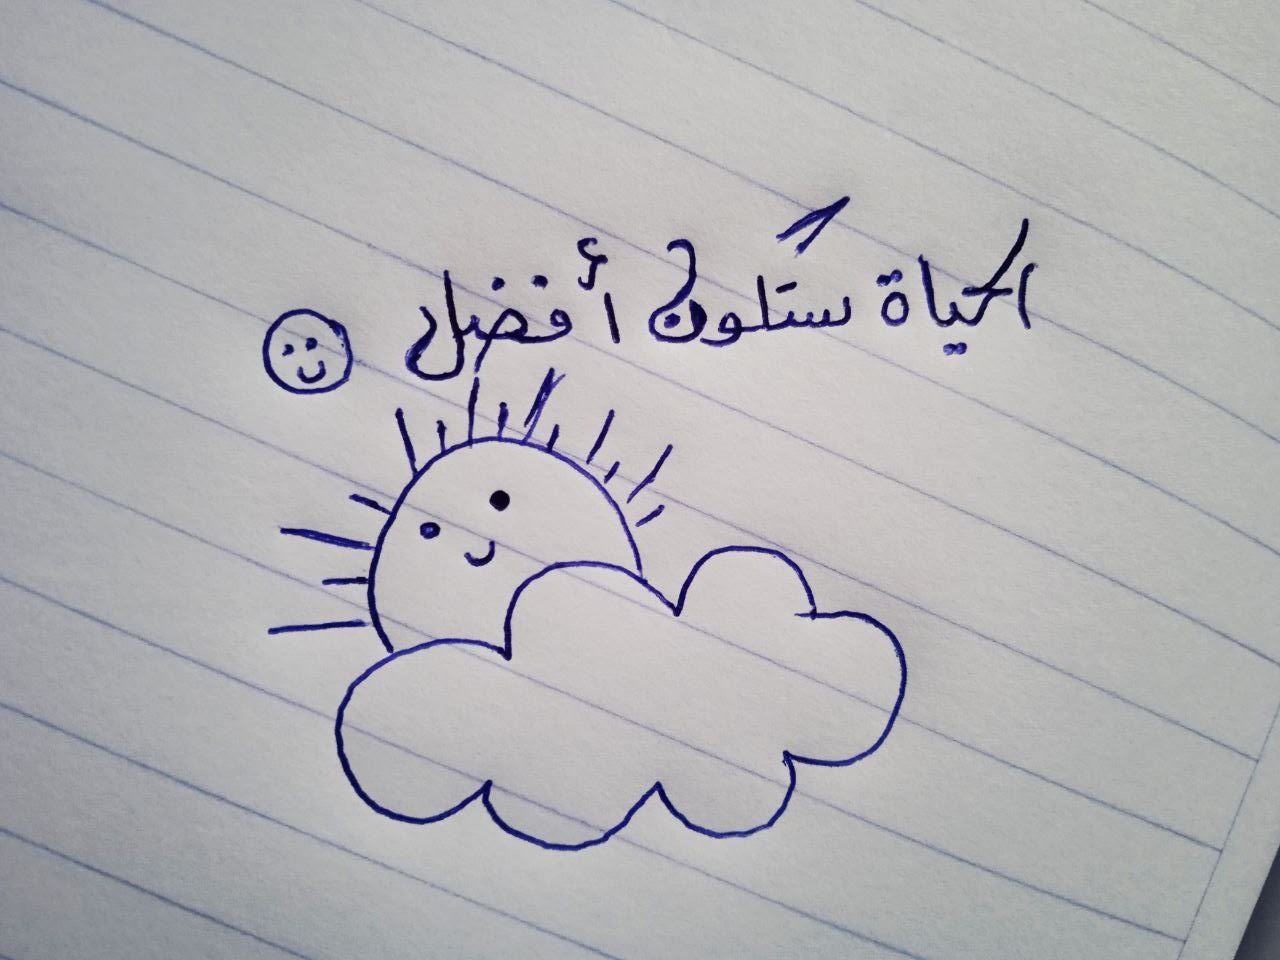 الحياة ستكون أفضل